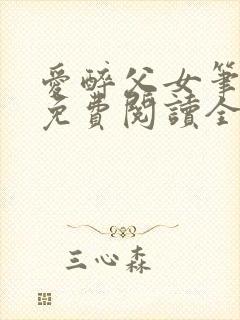 愛醉父女筆
免費閱讀全
三心森